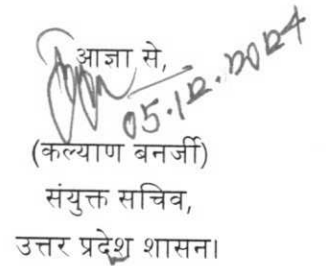 आज्ञा से,
05.12.2024
(कल्याण बनर्जी)
संयुक्त सचिव,
उत्तर प्रदेश शासन।